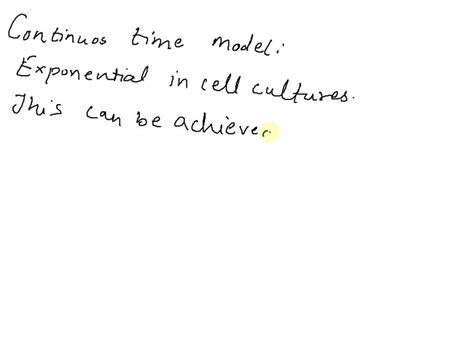 Continuos time model:
Exponential in cell cultures.
This can be achieve